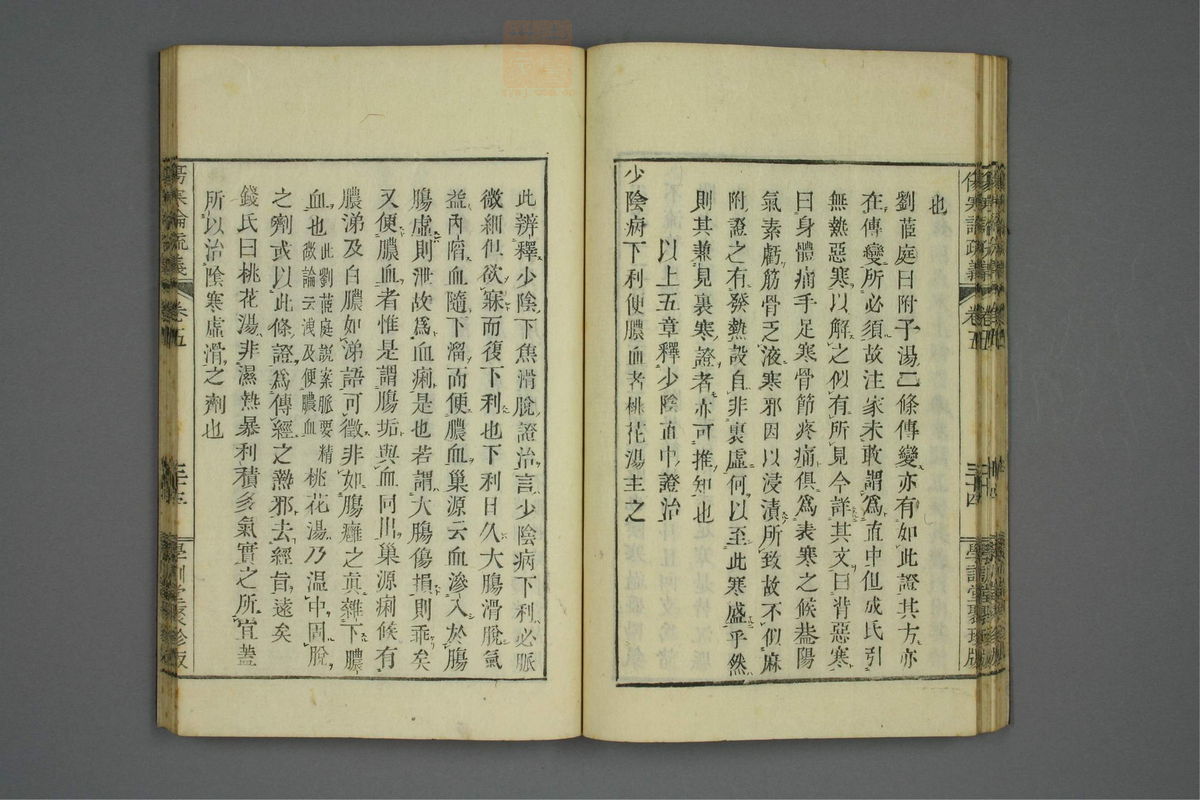 傷寒論疏義 卷五 三十四 學訓堂聚珍版
也
劉茝庭曰附子湯二條傳變亦有如此證其方亦
在傳變所必須故注家未敢謂爲直中但成氏引
無熱惡寒以解之似有所見今詳其文曰背惡寒
曰身體痛手足寒骨節疼痛俱爲表寒之候葢陽
氣素虧筋骨乏液寒邪因以浸漬所致故不似麻
附證之有發熱設自非裏虛何以至此寒盛乎然
則其兼見裏寒證者亦可推知也
以上五章釋少陰直中證治
少陰病下利便膿血者桃花湯主之
此辨釋少陰下焦滑脫證治言少陰病下利必脈
微細但欲寐而復下利也下利日久大腸滑脫氣
益內陷血隨下溜而便膿血巢源云血滲入於腸
腸虛則泄故爲血痢是也若謂大腸傷損則乖矣
又便膿血者惟是謂腸垢與血同出巢源痢候有
膿涕及白膿如涕語可徵非如腸癰之眞雜下膿
血也此劉茝庭說案脈要精微論云洩及便膿血桃花湯乃温中固脫
之劑或以此條證爲傳經之熱邪去經旨遠矣
錢氏曰桃花湯非濕熱暴利積多氣實之所宜蓋
所以治陰寒虛滑之劑也
傷寒論疏義 卷五 三十五 學訓堂聚珍版